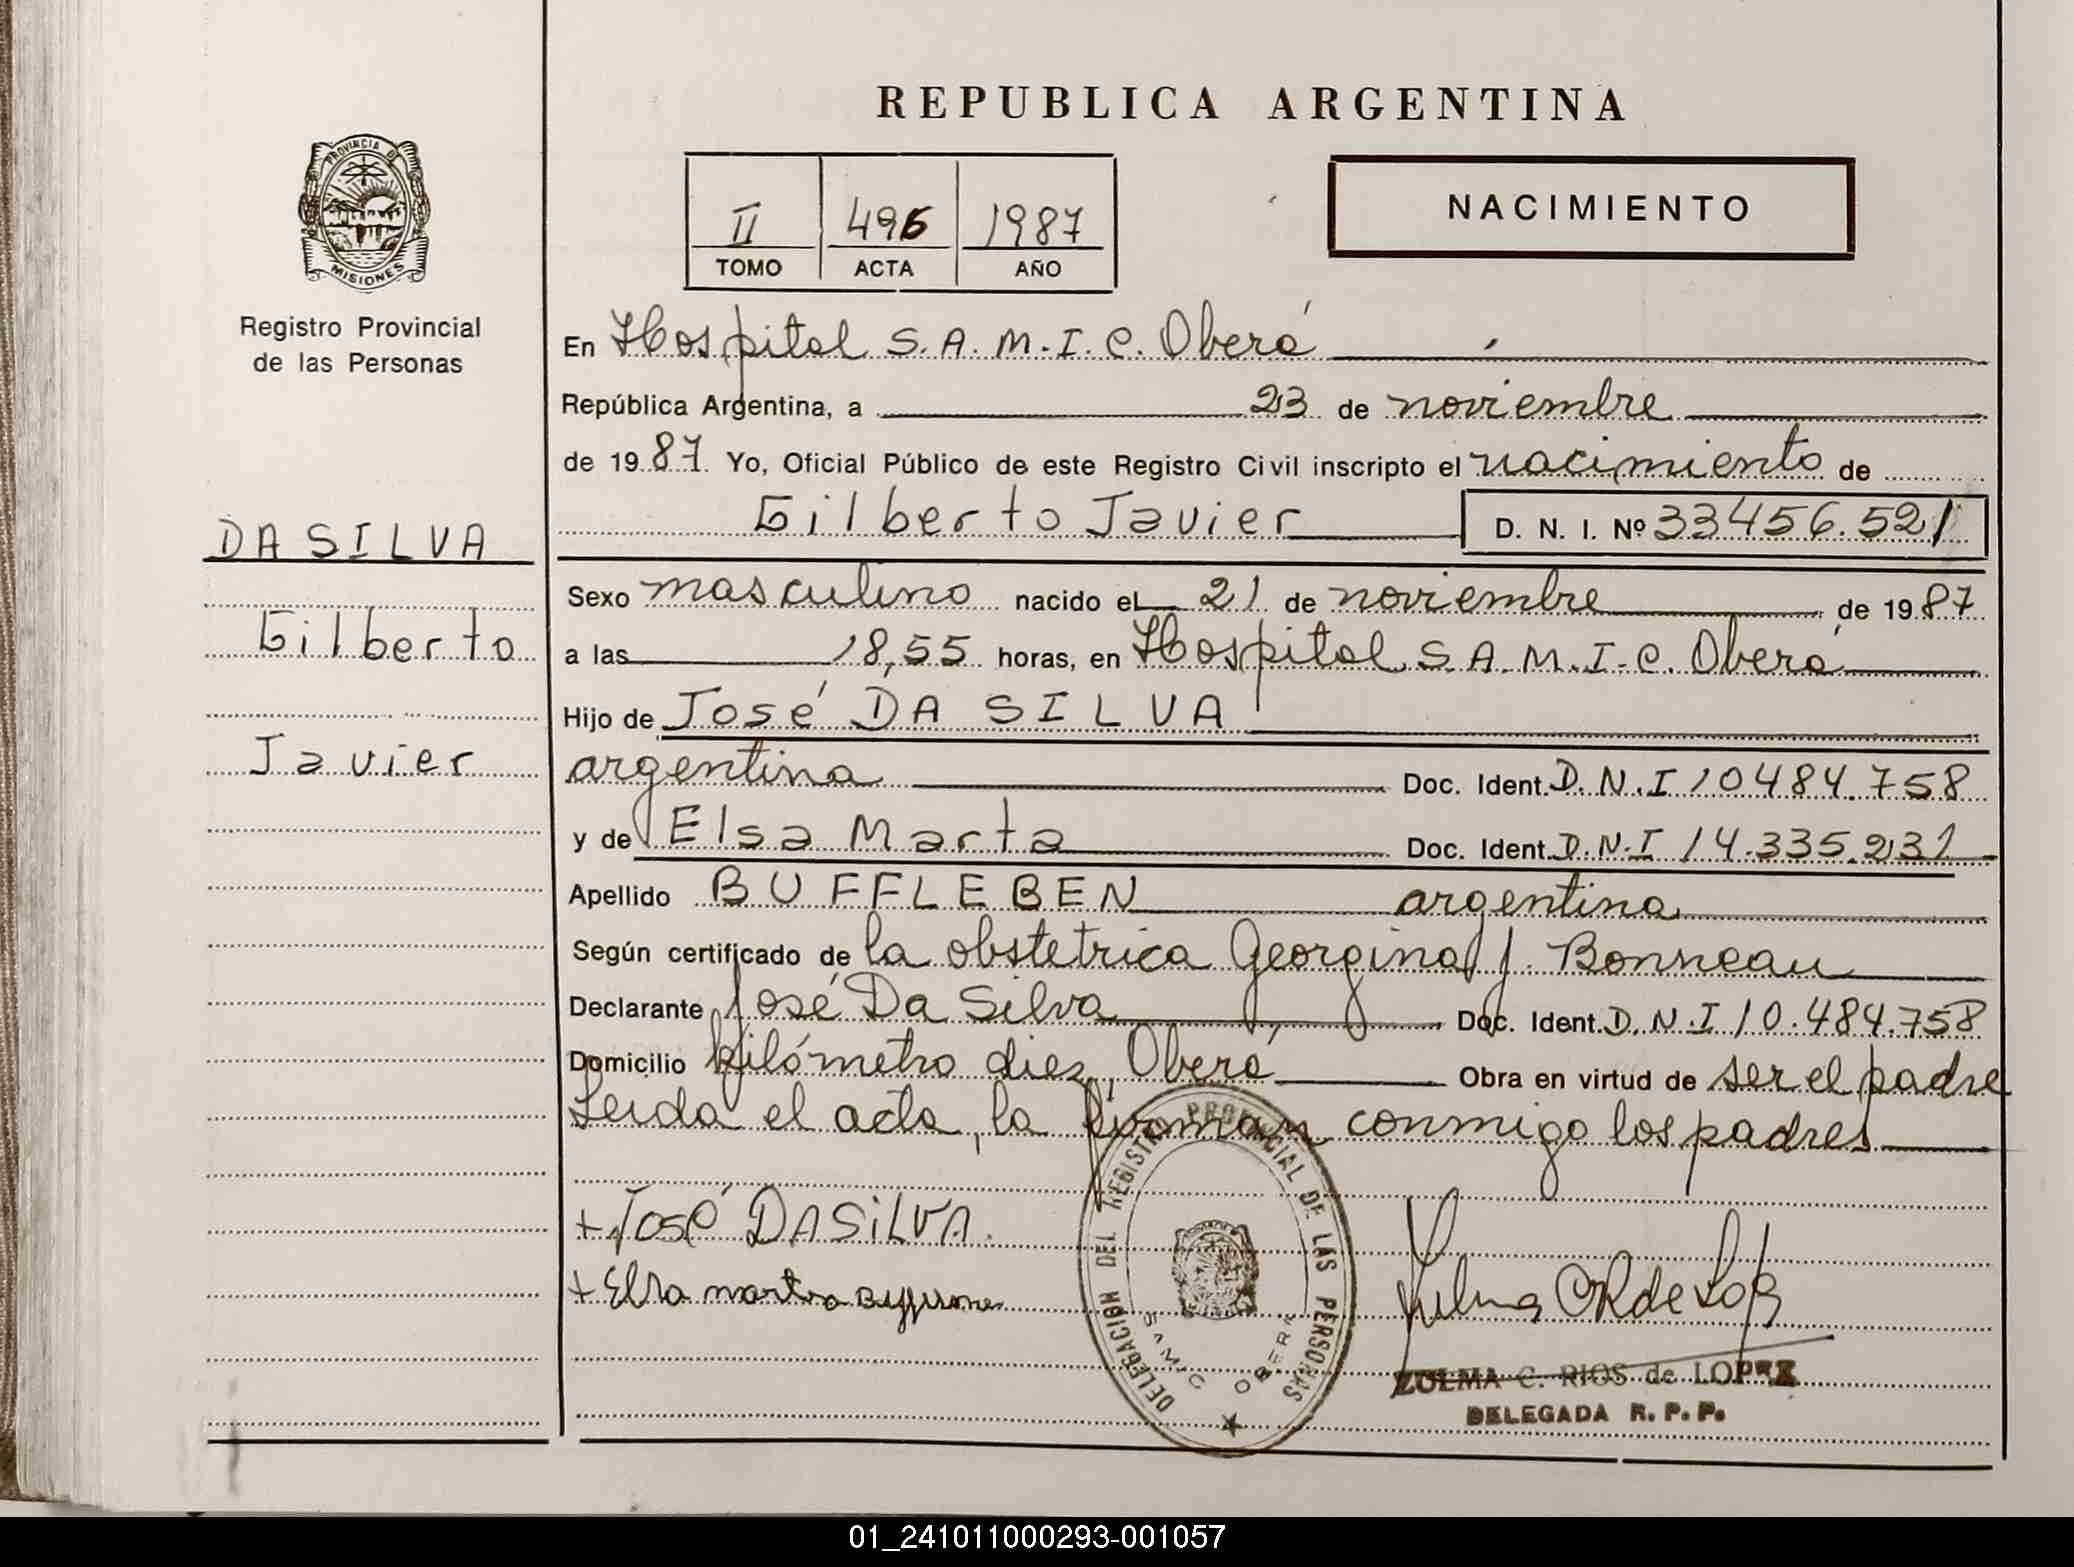 REPUBLICA ARGENTINA
PROVINCIA DE
MISIONES
Registro Provincial
de las Personas
II 496 1987
TOMO ACTA AÑO
NACIMIENTO
En Hospital S.A.M.I.C. Oberá
República Argentina, a 23 de noviembre
de 1987. Yo, Oficial Público de este Registro Civil inscripto el nacimiento de
Gilberto Javier D. N. I. Nº 33456.521
DA SILVA
Gilberto
Javier
Sexo masculino nacido el 21 de noviembre de 1987
a las 18,55 horas, en Hospital S.A.M.I.C. Oberá
Hijo de José DA SILVA
argentina Doc. Ident. D.N.I 10484.758
y de Elsa Marta Doc. Ident. D.N.I 14.335.231
Apellido BUFFLEBEN argentina
Según certificado de la obstetrica Georgina J. Bonneau
Declarante José Da Silva Doc. Ident. D.N.I 10.484.758
Domicilio kilómetro diez, Oberá Obra en virtud de ser el padre
Leida el acta, la firman conmigo los padres
+ José DASiLVA.
+ Elsa marta
DELEGACION DEL REGISTRO PROVINCIAL DE LAS PERSONAS
SAMIC OBERA
ZULMA C. RIOS de LOPEZ
DELEGADA R. P. P.
01_241011000293-001057